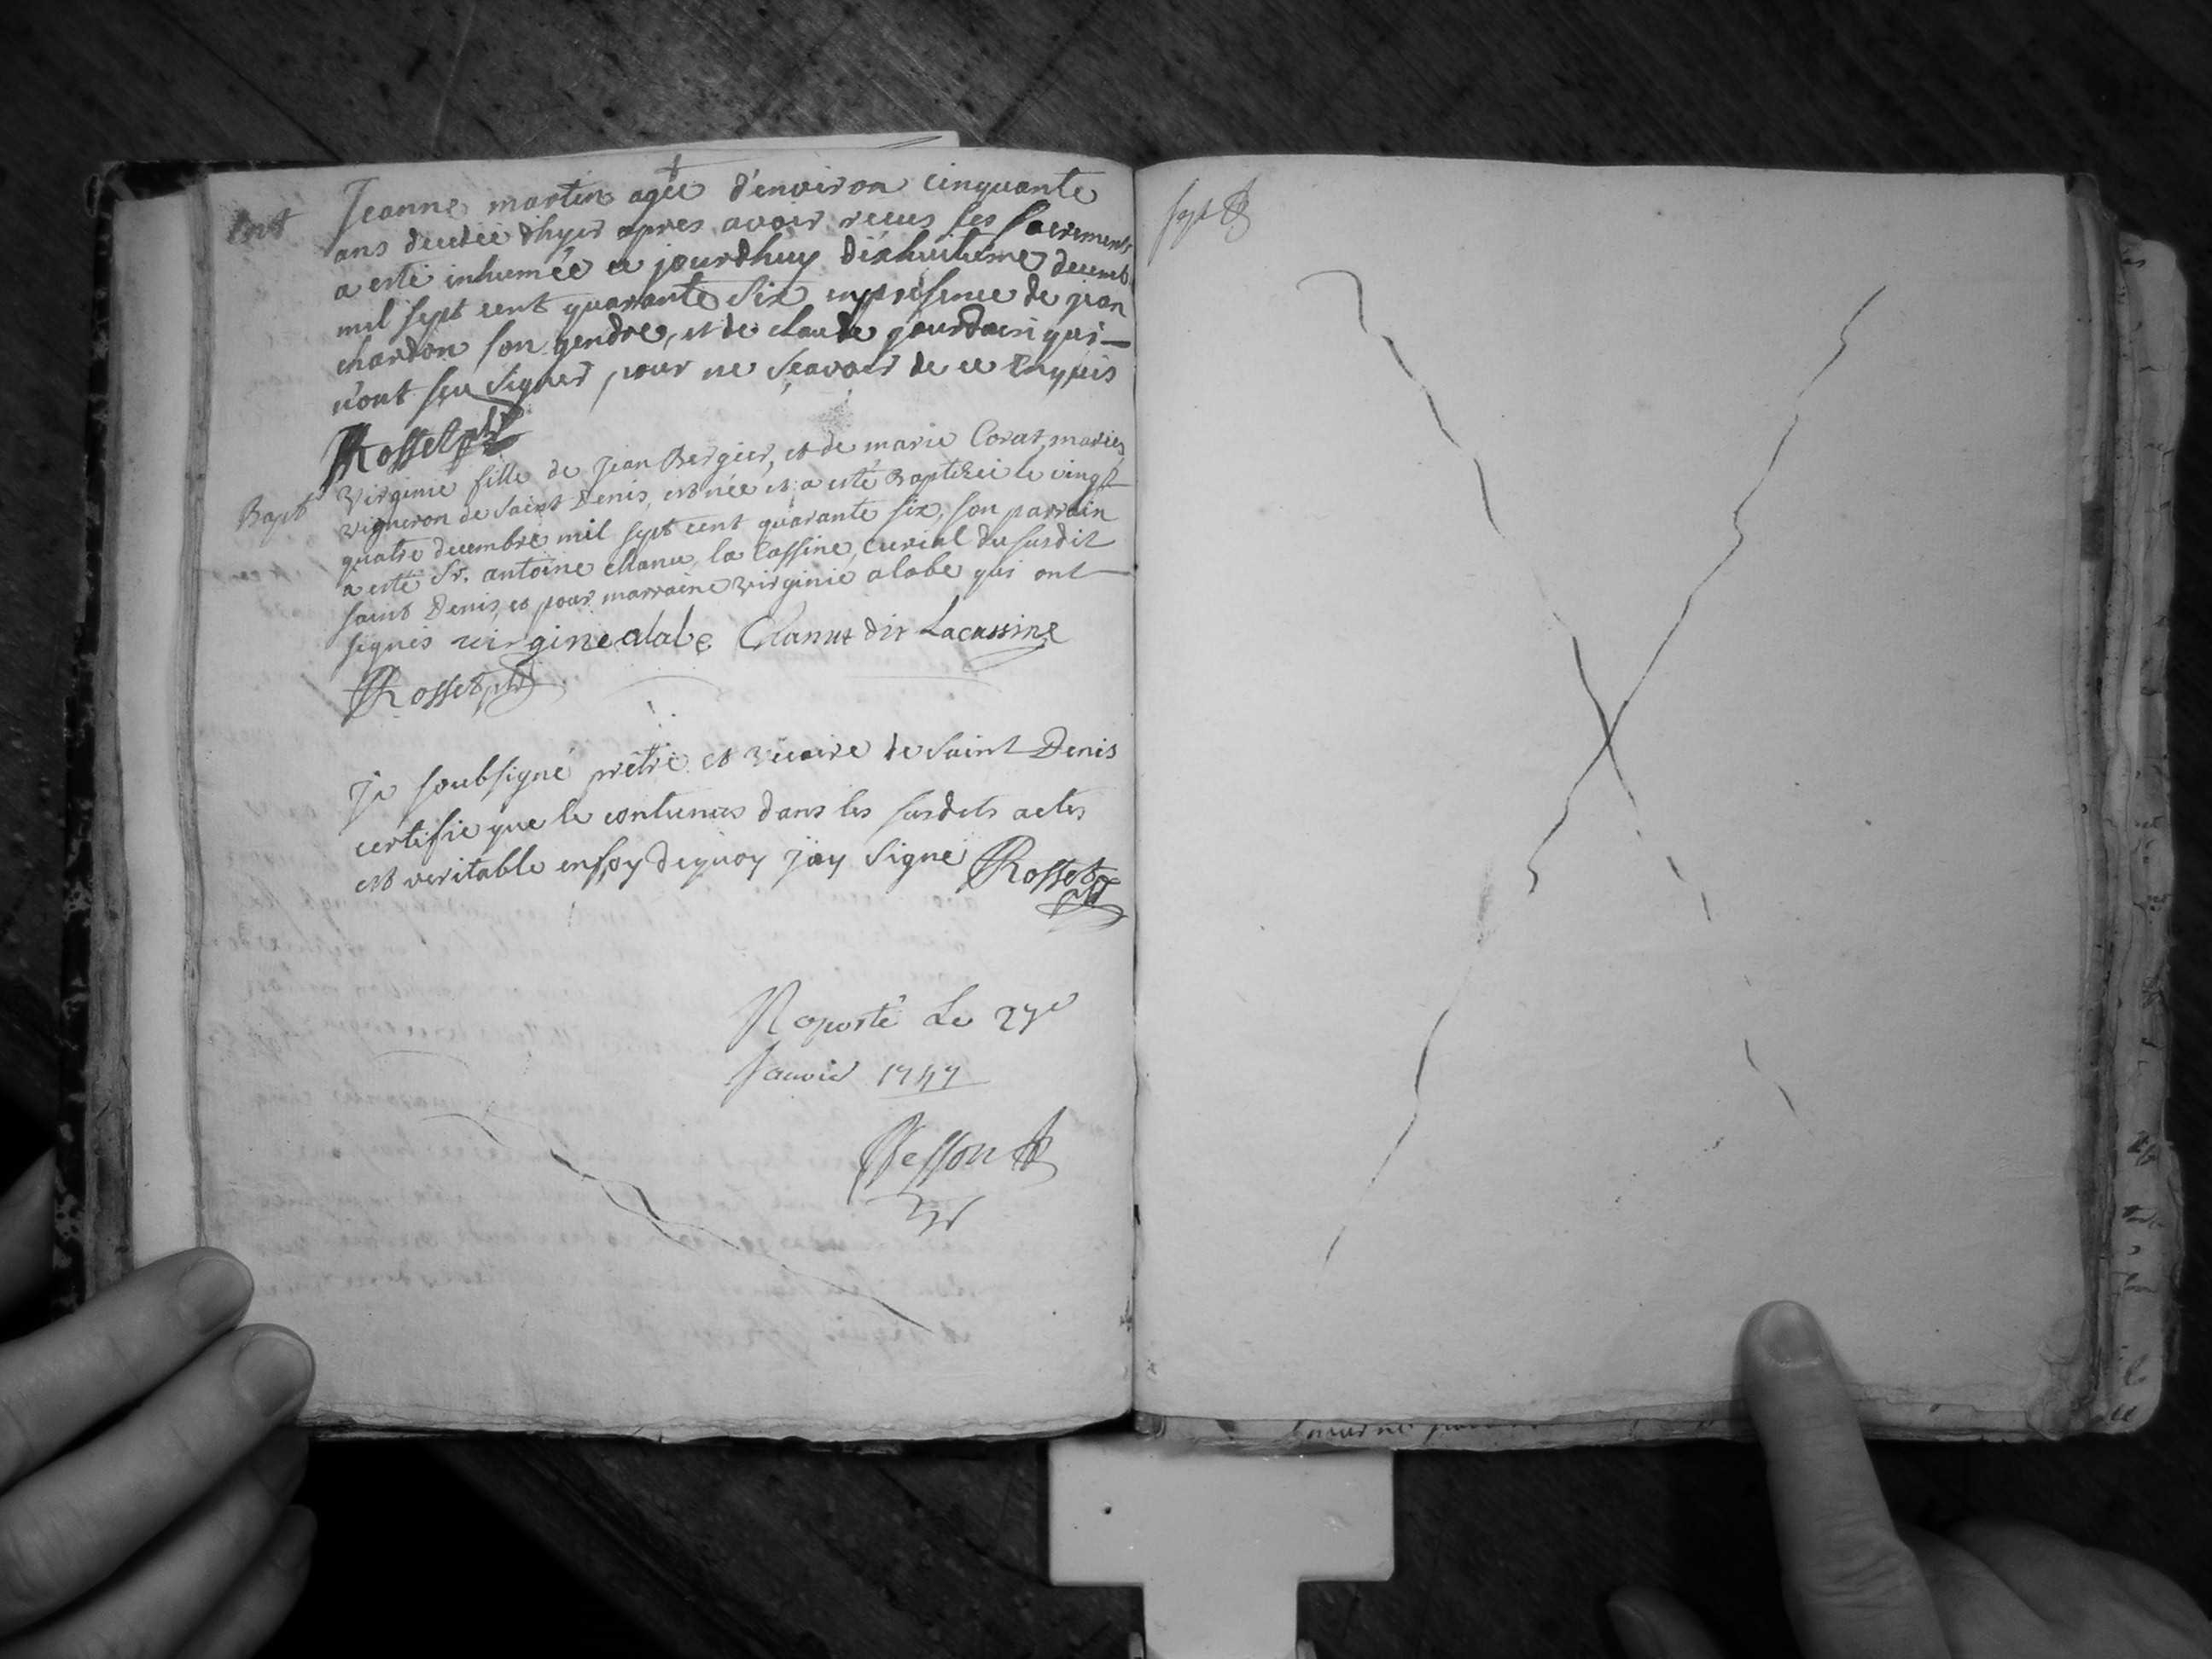 Ent
Jeanne martin agée d'environ cinquante
ans decedée d'hyer apres avoir reçus ses sacrements
a esté inhumée ce jourdhuy dixhuitieme decemb
mil sept cent quarante six en présence de jean
chardon son gendre, et de claude jourdain qui
n'ont sçu signer pour ne sçavoir de ce enquis
Rosset ptr
Bapt
Virginie fille de Jean Bergier, et de marie Corat, mariés
vigneron de saint Denis, est née et a esté Baptizéé le vingt
quatre decembre mil sept cent quarante six, son parrain
a esté Sr. antoine chanu la Cassine, curial du susdit
saint Denis, et pour marraine virginie alabe qui ont
signés virgine alabe Chanut dit Lacassine
Rosset ptr
Je soubsigné prêtre et vicaire de Saint Denis
certifie que le contenus dans les susdits actes
est veritable en foy de quoy jay signé Rosset
Raporté Le 27e
Janvier 1747
Tesson
sept